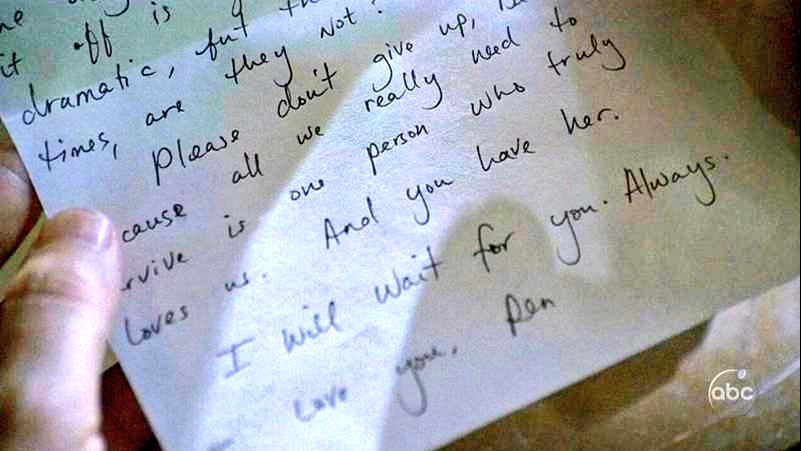 it off is
dramatic, but
times, are they not?
Please don't give up, Be
cause all we really need to
rvive is one person who truly
loves us. And you have her.
I will wait for you. Always.
love you, Pen
abc